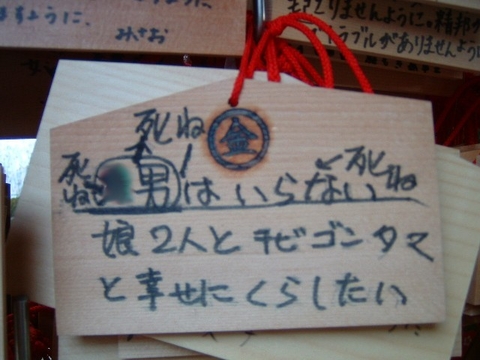 すように、
みさお
ありませんように。精邦
トラブルがありませんように
死ね
金
死ね
男はいらない
死ね
娘2人とチビゴンタマ
と幸せにくらしたい